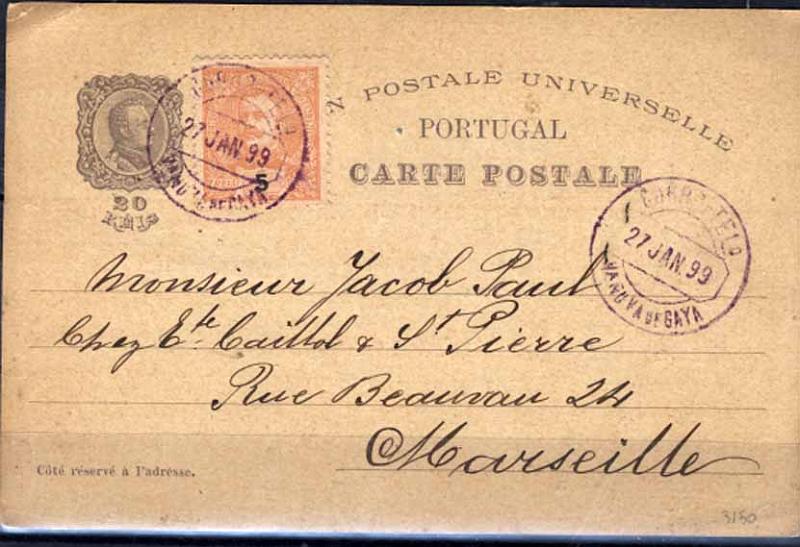 POSTALE UNIVERSELLE
PORTUGAL
CARTE POSTALE
20
REIS
5
27 JAN 99
VA NOVA DE GAYA
27 JAN. 99
VA NOVA DE GAYA
Monsieur Jacob Paul
Chez Ete Caittol & St Pierre
Rue Beauvau 24
Marseille
Côté réservé à l'adresse.
3150